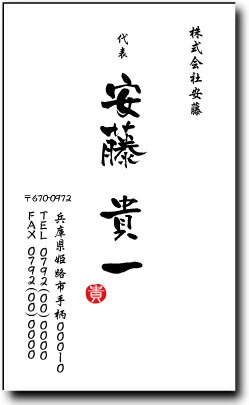 株式会社安藤
代表
安藤 貴一
貴
〒670-0972
兵庫県姫路市手柄000-0
TEL 0792(00)0000
FAX 0792(00)0000